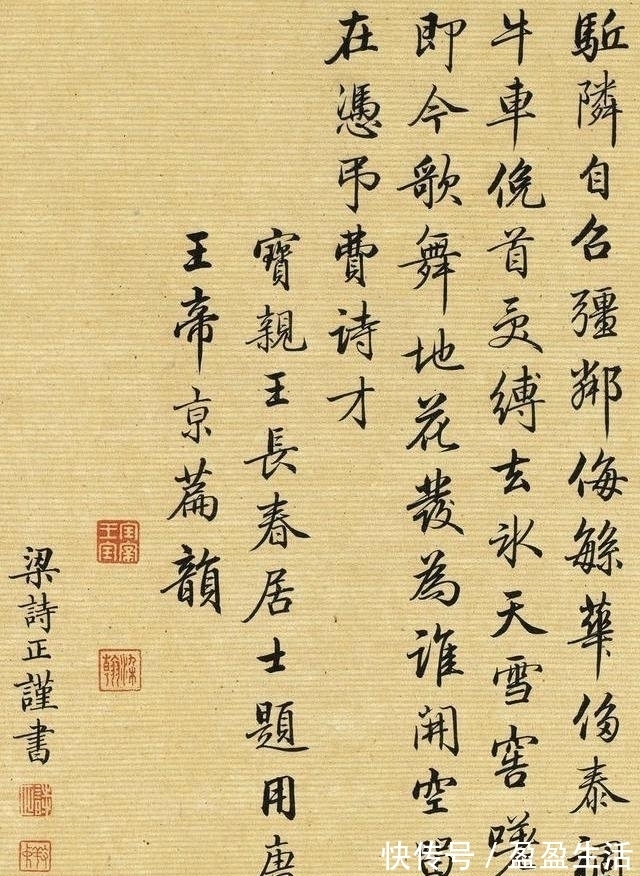 隣自召彊鄰侮緐華侈泰
牛車俛首受縛去氷天雪窖
即今歌舞地花發為誰開空留
在憑弔費詩才
寶親王長春居士題用唐
王帝京篇韻
梁詩正謹書
快传号 / 盈盈生活